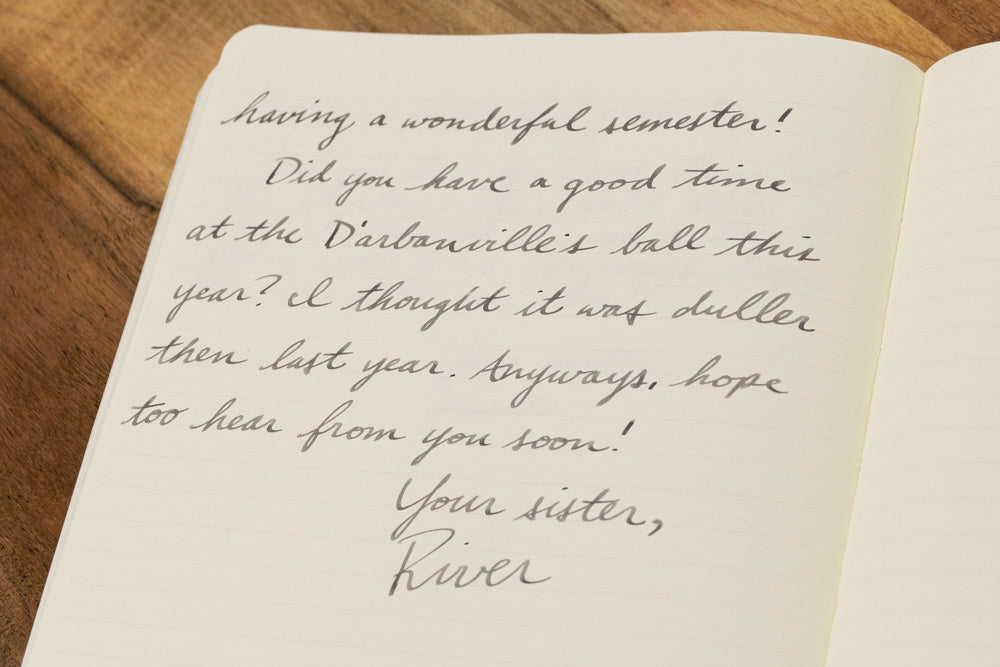 having a wonderful semester!
Did you have a good time
at the D'arbanville's ball this
year? I thought it was duller
then last year. Anyways, hope
too hear from you soon!
Your sister,
River